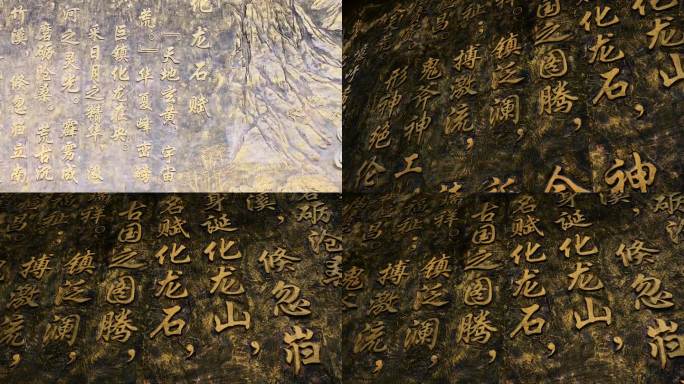 化龙石赋
“天地玄黄,宇宙
荒。”华夏峰峦
巨镇化龙在央。
采日月之精华,
河之灵光。霹雾成
磨砺沧桑。荒古沉
竹溪,倏忽归立南
化龙山,
化龙石,神
之图腾,
镇泛澜,
昌。搏激流,
鬼斧神工
形神绝伦
砺沧
溪,倏忽归
身诞化龙山,
名赋化龙石,
古国之图腾,
祥。镇泛澜,
昌。搏激流,
砺沧
溪,倏忽归
身诞化龙山,
名赋化龙石,
古国之图腾,
祥。镇泛澜,
昌。搏激流,
鬼